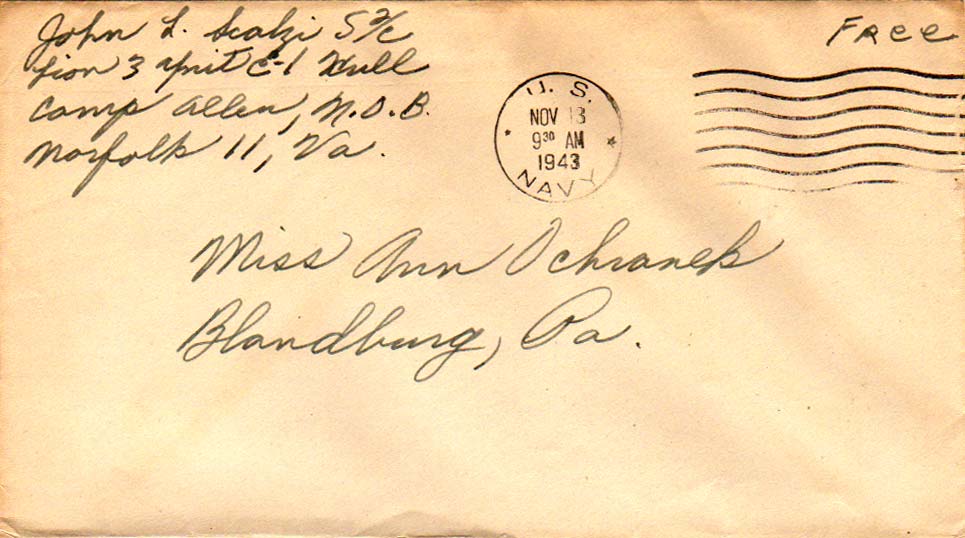 John L. Scalzi S 2/c
Camp Allen, N.O.B.
Norfolk 11, Va.
Free
U. S.
NOV 13
9 30 AM
1943
NAVY
Miss Ann Ochranek
Blandburg, Pa.